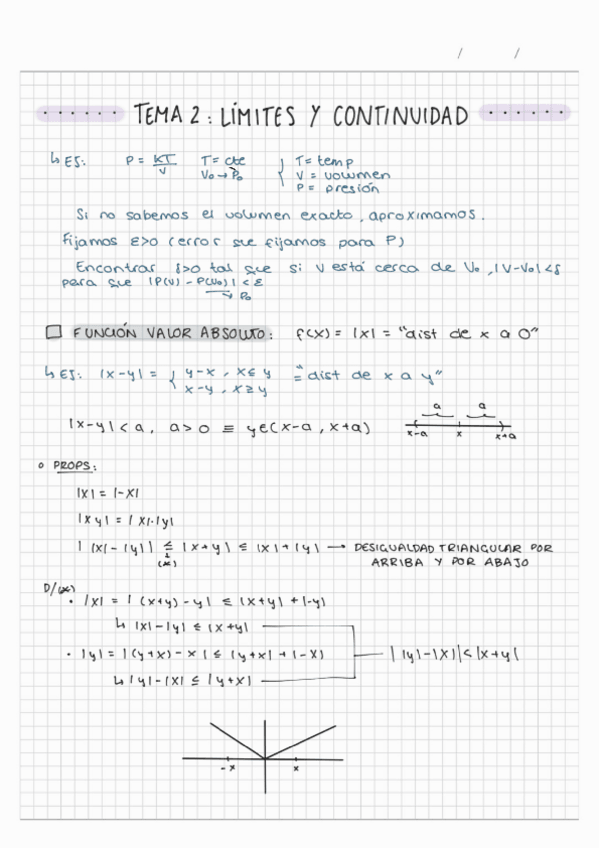 / /
TEMA 2: LÍMITES Y CONTINUIDAD
↳ EJ: P = KT/V T= cte { T= temp
V₀ → P₀ V = volumen
P = presión
Si no sabemos el volumen exacto, aproximamos.
Fijamos ε>0 (error que fijamos para P)
Encontrar δ>0 tal que si V está cerca de V₀, |V-V₀|<δ
para que |P(V) - P(V₀)| < ε
→ P₀
□ FUNCIÓN VALOR ABSOLUTO: f(x) = |x| = "dist de x a 0"
↳ EJ: |x-y| = { y-x , x≤y = "dist de x a y"
x-y , x≥y
|x-y| < a, a>0 ≡ y∈(x-a, x+a)
a a
x-a x x+a
o PROPS:
|x| = |-x|
|xy| = |x|·|y|
| |x| - |y| | ≤ |x+y| ≤ |x|+|y| → DESIGUALDAD TRIANGULAR POR
(*) ARRIBA Y POR ABAJO
D/(*)
· |x| = | (x+y) - y| ≤ |x+y| + |-y|
↳ |x| - |y| ≤ |x+y|
· |y| = |(y+x) - x| ≤ |y+x| + |-x| | |y|-|x| | ≤ |x+y|
↳ |y| - |x| ≤ |y+x|
-x x